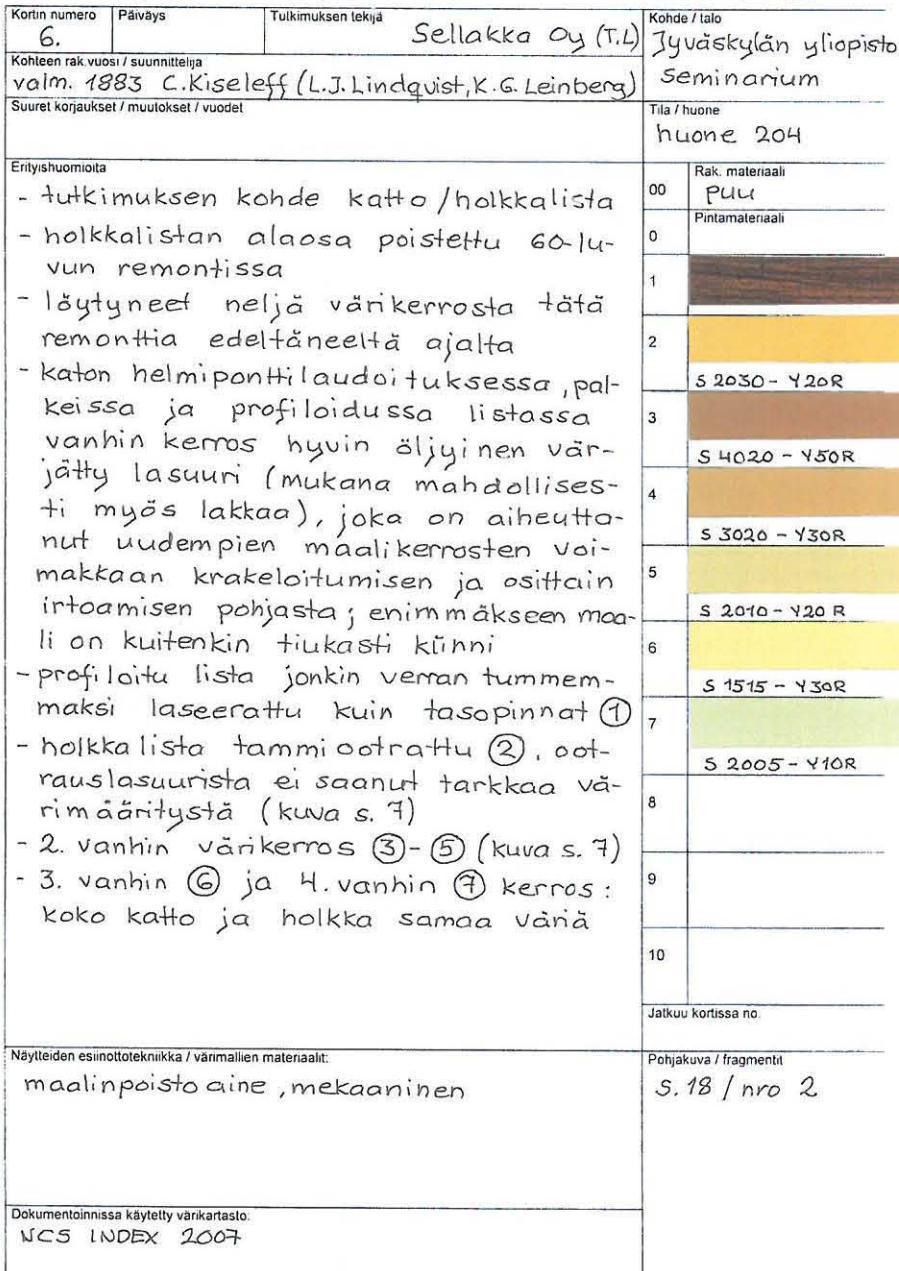 Kortin numero
6.
Päiväys
Tutkimuksen tekijä
Sellakka Oy (T.L)
Kohde / talo
Jyväskylän yliopisto
Seminarium
Kohteen rak.vuosi / suunnittelija
valm. 1883 C.Kiseleff (L.J.Lindquist, K.G. Leinberg)
Suuret korjaukset / muutokset / vuodet
Tila / huone
huone 204
Erityishuomioita
- tutkimuksen kohde katto / holkkalista
- holkkalistan alaosa poistettu 60-lu-
vun remontissa
- löytyneet neljä värikerrosta tätä
remonttia edeltäneeltä ajalta
- katon helmiponttilaudoituksessa, pal-
keissa ja profiloidussa listassa
vanhin kerros hyvin öljyinen vär-
jätty lasuuri (mukana mahdollises-
ti myös lakkaa), joka on aiheutta-
nut uudempien maalikerrosten voi-
makkaan krakeloitumisen ja osittain
irtoamisen pohjasta; enimmäkseen maa-
li on kuitenkin tiukasti kiinni
- profiloitu lista jonkin verran tummem-
maksi laseerattu kuin tasopinnat ①
- holkkalista tammiootrattu ②, oot-
rauslasuurista ei saanut tarkkaa vä-
rimääritystä (kuva s. 7)
- 2. vanhin värikerros ③-⑤ (kuva s. 7)
- 3. vanhin ⑥ ja 4. vanhin ⑦ kerros:
koko katto ja holkka samaa väriä
00
Rak. materiaali
puu
0
Pintamateriaali
1
2
S 2030 - Y20R
3
S 4020 - Y50R
4
S 3020 - Y30R
5
S 2010 - Y20 R
6
S 1515 - Y30R
7
S 2005 - Y10R
8
9
10
Jatkuu kortissa no.
Näytteiden esiinottotekniikka / värimallien materiaalit:
maalinpoistoaine, mekaaninen
Pohjakuva / fragmentit
s.18 / nro 2
Dokumentoinnissa käytetty värikartasto:
NCS INDEX 2007